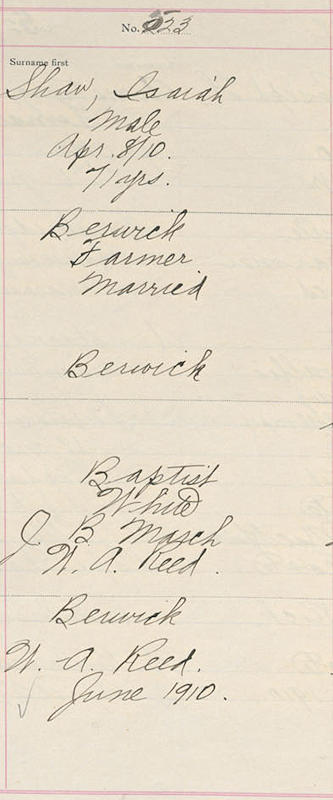 No. 533
Surname first
Shaw, Isaiah
Male
Apr. 8/10.
71 yrs.
Berwick
Farmer
Married
Berwick
Baptist
White
J. B. Masch
W. A. Reed.
Berwick
W. A. Reed.
June 1910.